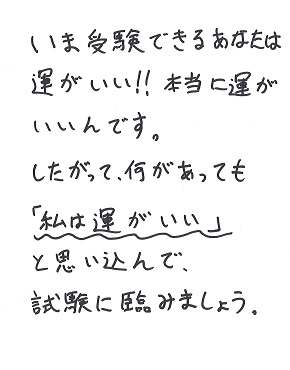 いま受験できるあなたは
運がいい!! 本当に運が
いいんです。
したがって、何があっても
「私は運がいい」
と思い込んで、
試験に臨みましょう。